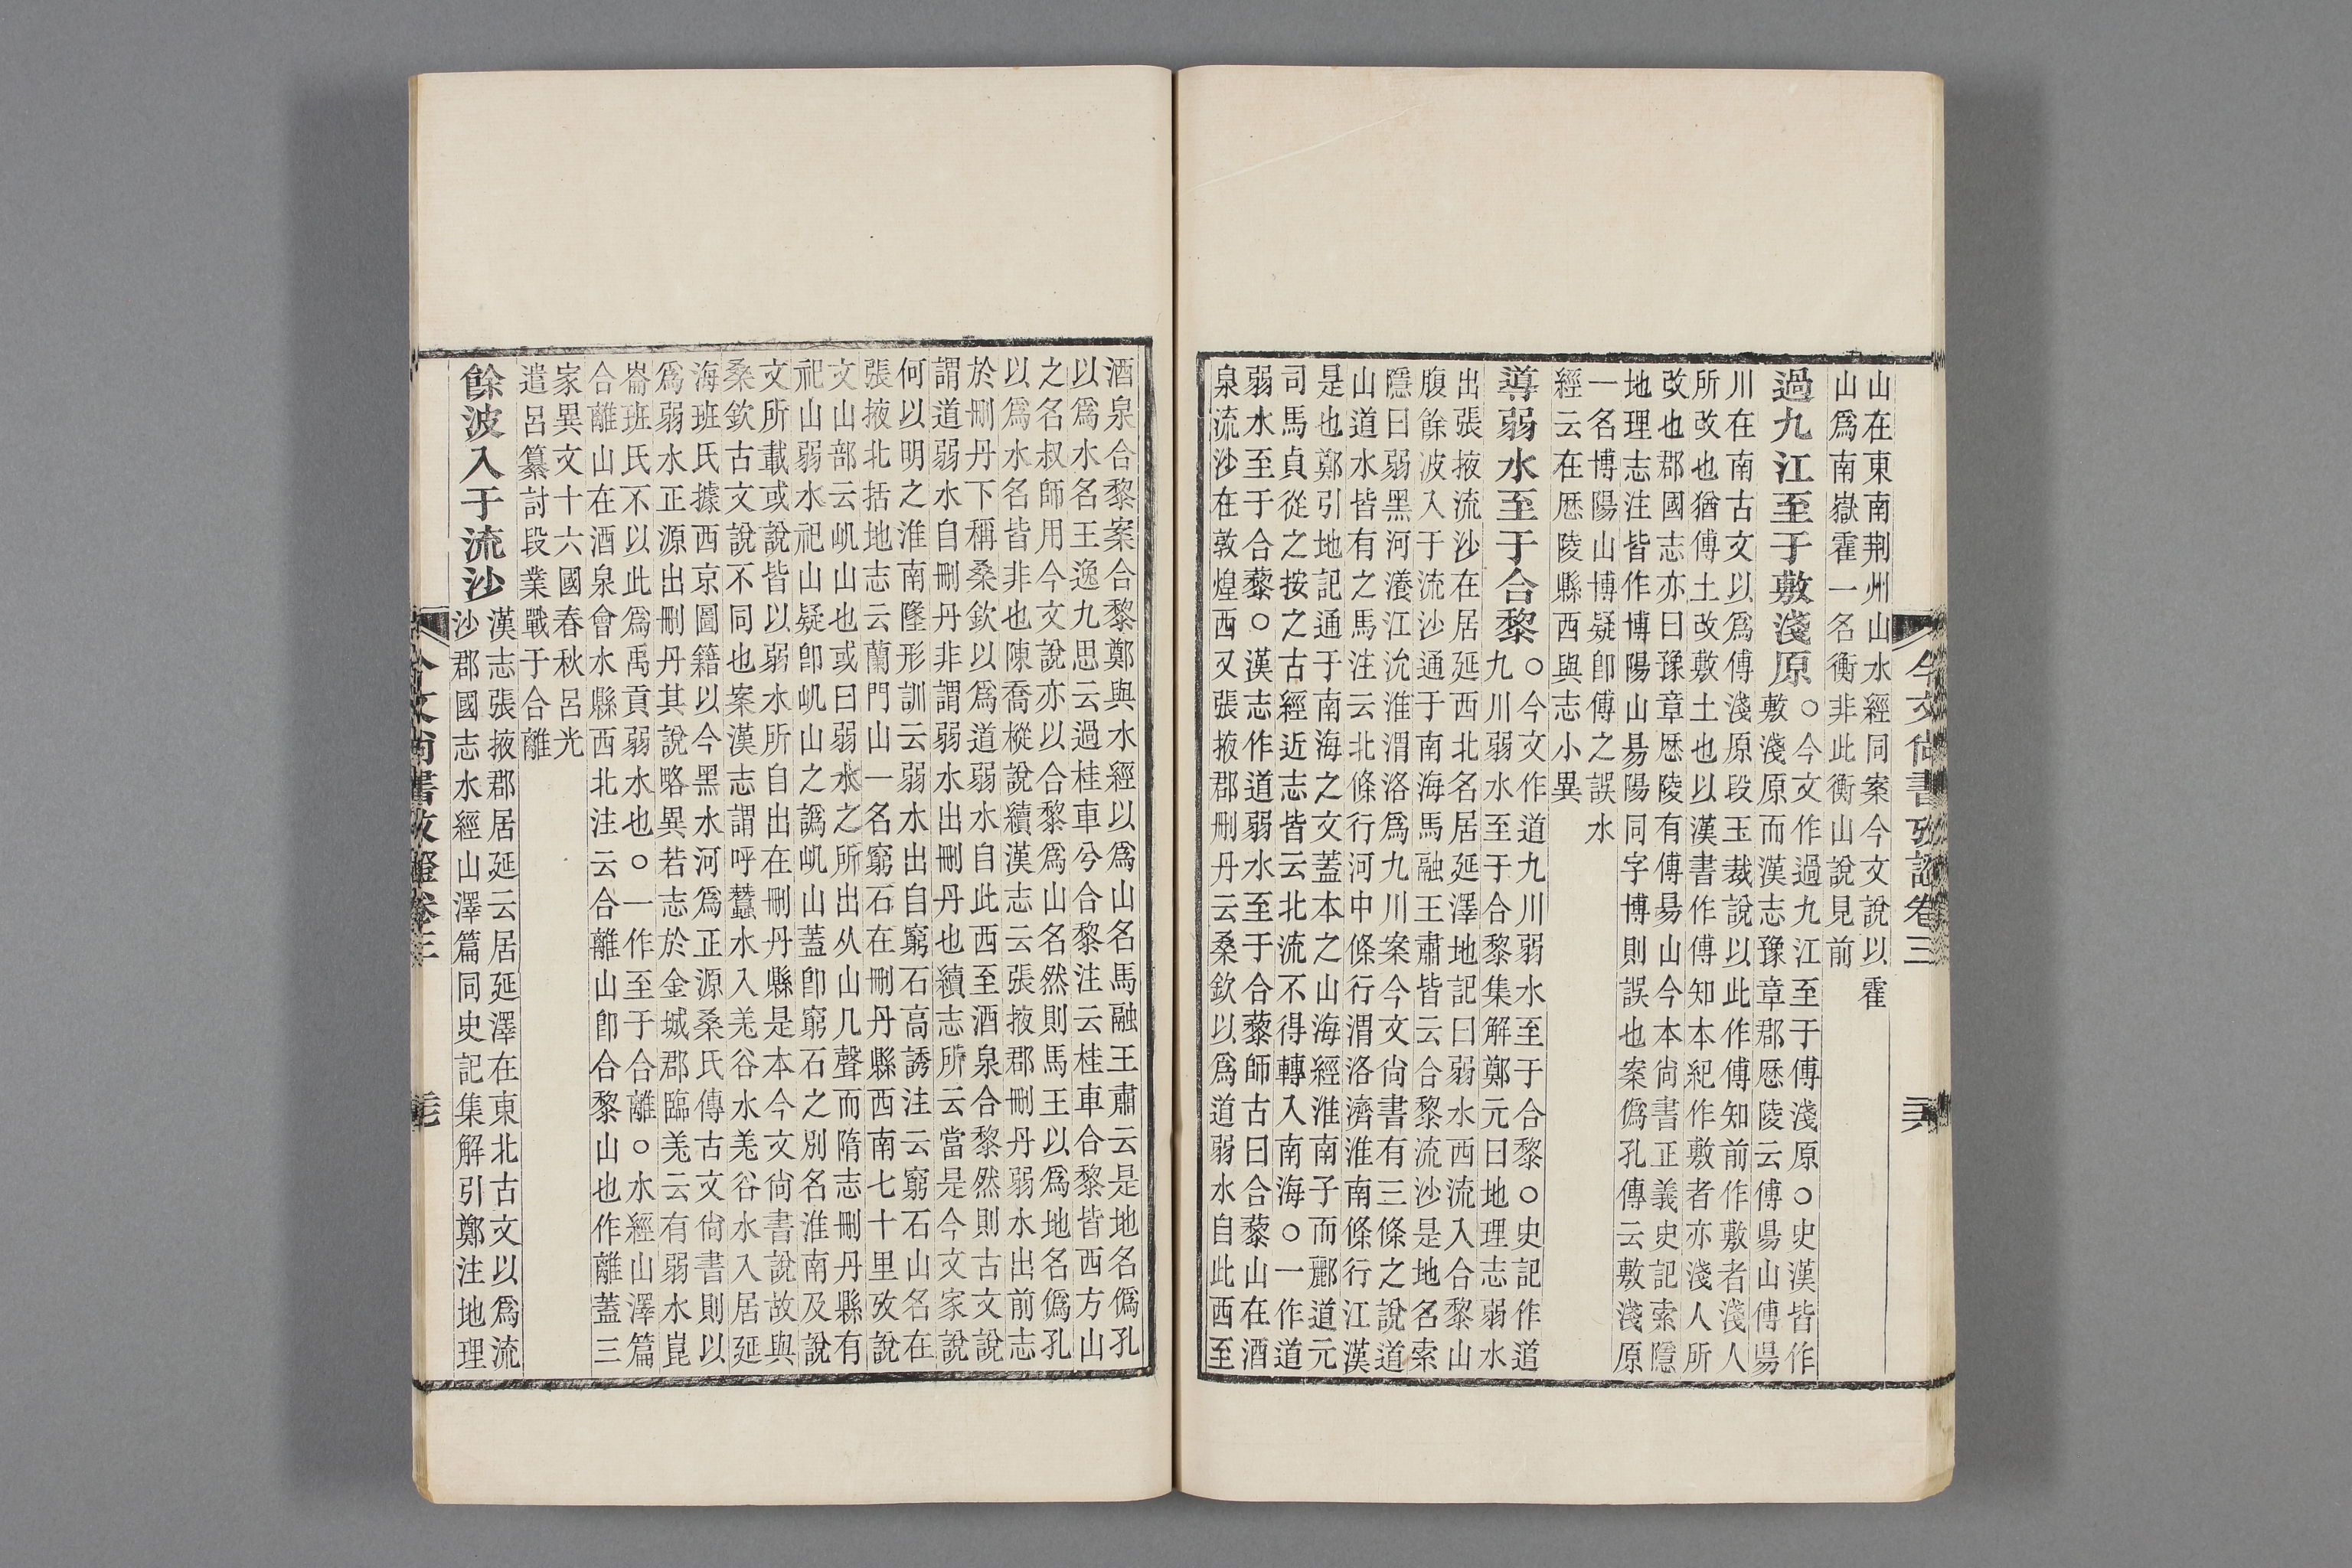 今文尚書攷證卷三
山在東南荆州山水經同案今文說以霍
山爲南嶽霍一名衡非此衡山說見前
過九江至于敷淺原
○今文作過九江至于傅淺原○史漢皆作
敷淺原而漢志豫章郡厯陵云傅昜山傅昜
川在南古文以爲傅淺原段玉裁說以此作傅知前作敷者淺人
所改也猶傅土改敷土也以漢書作傅知本紀作敷者亦淺人所
改也郡國志亦曰豫章厯陵有傅昜山今本尚書正義史記索隱
地理志注皆作博陽山昜陽同字博則誤也案僞孔傳云敷淺原
一名博陽山博疑卽傅之誤水
經云在厯陵縣西與志小異
導弱水至于合黎
○今文作道九川弱水至于合黎○史記作道
九川弱水至于合黎集解鄭元曰地理志弱水
出張掖流沙在居延西北名居延澤地記曰弱水西流入合黎山
腹餘波入于流沙通于南海馬融王肅皆云合黎流沙是地名索
隱曰弱黑河瀁江沇淮渭洛爲九川案今文尚書有三條之說道
山道水皆有之馬注云北條行河中條行渭洛濟淮南條行江漢
是也鄭引地記通于南海之文蓋本之山海經淮南子而酈道元
司馬貞從之按之古經近志皆云北流不得轉入南海○一作道
弱水至于合藜○漢志作道弱水至于合藜師古曰合藜山在酒
泉流沙在敦煌西又張掖郡刪丹云桑欽以爲道弱水自此西至
酒泉合黎案合黎鄭與水經以爲山名馬融王肅云是地名僞孔
以爲水名王逸九思云過桂車兮合黎注云桂車合黎皆西方山
之名叔師用今文說亦以合黎爲山名然則馬王以爲地名僞孔
以爲水名皆非也陳喬樅說續漢志云張掖郡刪丹弱水出前志
於刪丹下稱桑欽以爲道弱水自此西至酒泉合黎然則古文說
謂道弱水自刪丹非謂弱水出刪丹也續志所云當是今文家說
何以明之淮南隆形訓云弱水出自窮石高誘注云窮石山名在
張掖北括地志云蘭門山一名窮石在刪丹縣西南七十里攷說
文山部云𡵉山也或曰弱水之所出从山几聲而隋志刪丹縣有
祀山弱水祀山疑卽𡵉山之譌𡵉山蓋卽窮石之別名淮南及說
文所載或說皆以弱水所自出在刪丹縣是本今文尚書說故與
桑欽古文說不同也案漢志謂呼蠶水入羌谷水羌谷水入居延
海班氏據西京圖籍以今黑水河爲正源桑氏傳古文尚書則以
爲弱水正源出刪丹其說略異若志於金城郡臨羌云有弱水崑
崙班氏不以此爲禹貢弱水也○一作至于合離○水經山澤篇
合離山在酒泉會水縣西北注云合離山卽合黎山也作離蓋三
家異文十六國春秋呂光
遣呂纂討段業戰于合離
餘波入于流沙
漢志張掖郡居延云居延澤在東北古文以爲流
沙郡國志水經山澤篇同史記集解引鄭注地理
今文尚書攷證卷三